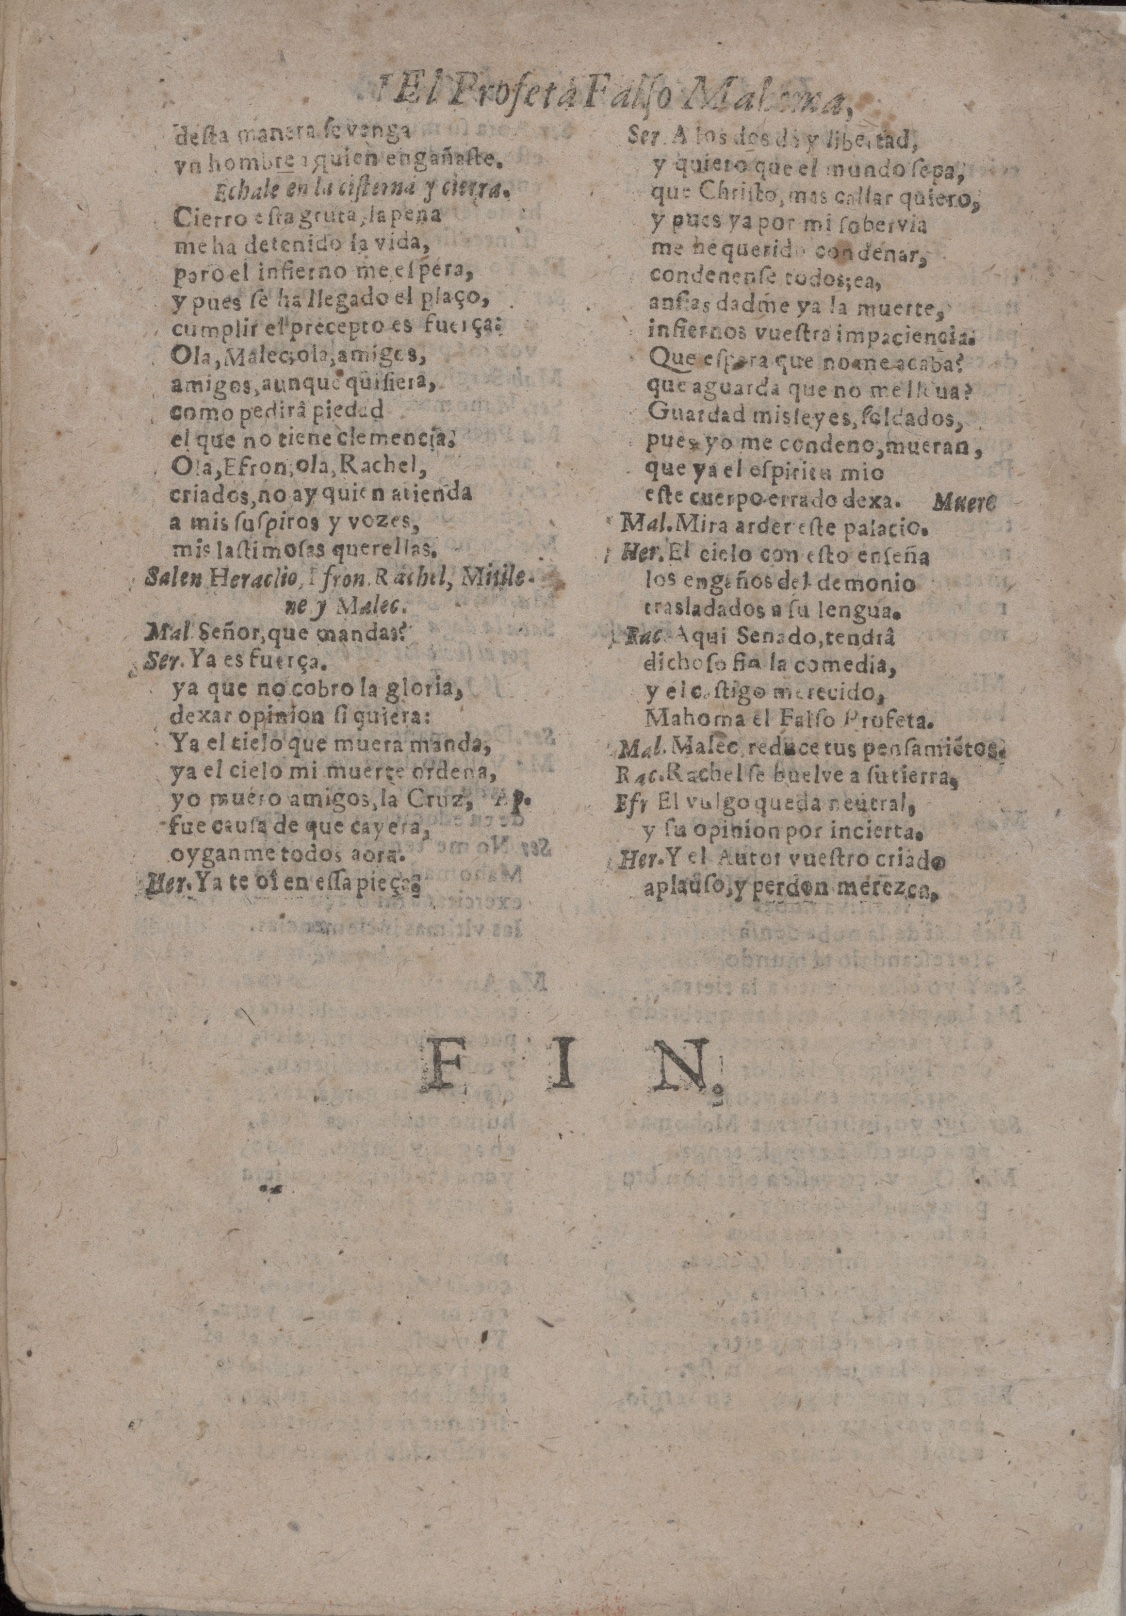 El Profeta Falso Mahoma,
desta manera se venga
vn hombre a quien engañaste.
Echale en la cisterna y cierra.
Cierro esta gruta, la pena
me ha detenido la vida,
pero el infierno me espera,
y pues se ha llegado el plaço,
cumplir el precepto es fuerça:
Ola, Malec, ola, amigos,
amigos, aunque quisiera,
como pedirâ piedad
el que no tiene clemencia.
Ola, Efron, ola, Rachel,
criados, no ay quien atienda
a mis suspiros y vozes,
mis lastimosas querellas.
Salen Heraclio, Efron. Rachel, Mitile-
ne y Malec.
Mal. Señor, que mandas?
Ser. Ya es fuerça.
ya que no cobro la gloria,
dexar opinion si quiera:
Ya el cielo que muera manda,
ya el cielo mi muerte ordena,
yo muero amigos, la Cruz, Ap.
fue causa de que cayera,
oyganme todos aora.
Her. Ya te oi en essa pieça?
Ser. A los dos dà y libertad,
y quiero que el mundo sepa,
que Christo, mas callar quiero,
y pues ya por mi sobervia
me he querido condenar,
condenense todos; ea,
ansias dadme ya la muerte,
infiernos vuestra impaciencia.
Que espera que no me acaba?
que aguarda que no me lleua?
Guardad mis leyes, soldados,
pues yo me condeno, mueran,
que ya el espiritu mio
este cuerpo errado dexa. Muere
Mal. Mira arder este palacio.
Her. El cielo con esto enseña
los engaños del demonio
trasladados a su lengua.
Rac. Aqui Senado, tendrâ
dichoso fin la comedia,
y el castigo merecido,
Mahoma el Falso Profeta.
Mal. Malec, reduce tus pensamiétos.
Rac. Rachel se buelve a su tierra,
Efr El vulgo queda neutral,
y su opinion por incierta.
Her. Y el Autor vuestro criado
aplauso, y perdon merezca.
F I N.